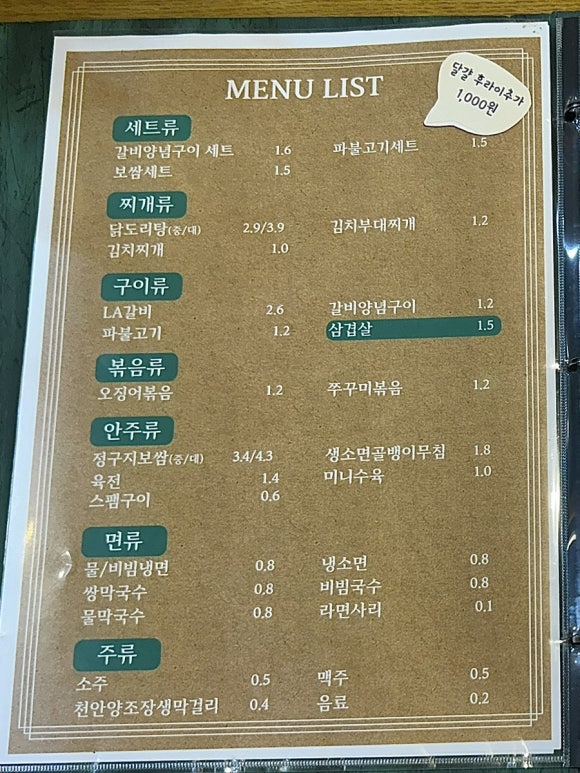 MENU LIST
달걀 후라이추가
1,000원
세트류
갈비양념구이 세트 1.6 파불고기세트 1.5
보쌈세트 1.5
찌개류
닭도리탕(중/대) 2.9/3.9 김치부대찌개 1.2
김치찌개 1.0
구이류
LA갈비 2.6 갈비양념구이 1.2
파불고기 1.2 삼겹살 1.5
볶음류
오징어볶음 1.2 쭈꾸미볶음 1.2
안주류
정구지보쌈(중/대) 3.4/4.3 생소면골뱅이무침 1.8
육전 1.4 미니수육 1.0
스팸구이 0.6
면류
물/비빔냉면 0.8 냉소면 0.8
쌍막국수 0.8 비빔국수 0.8
물막국수 0.8 라면사리 0.1
주류
소주 0.5 맥주 0.5
천안양조장생막걸리 0.4 음료 0.2